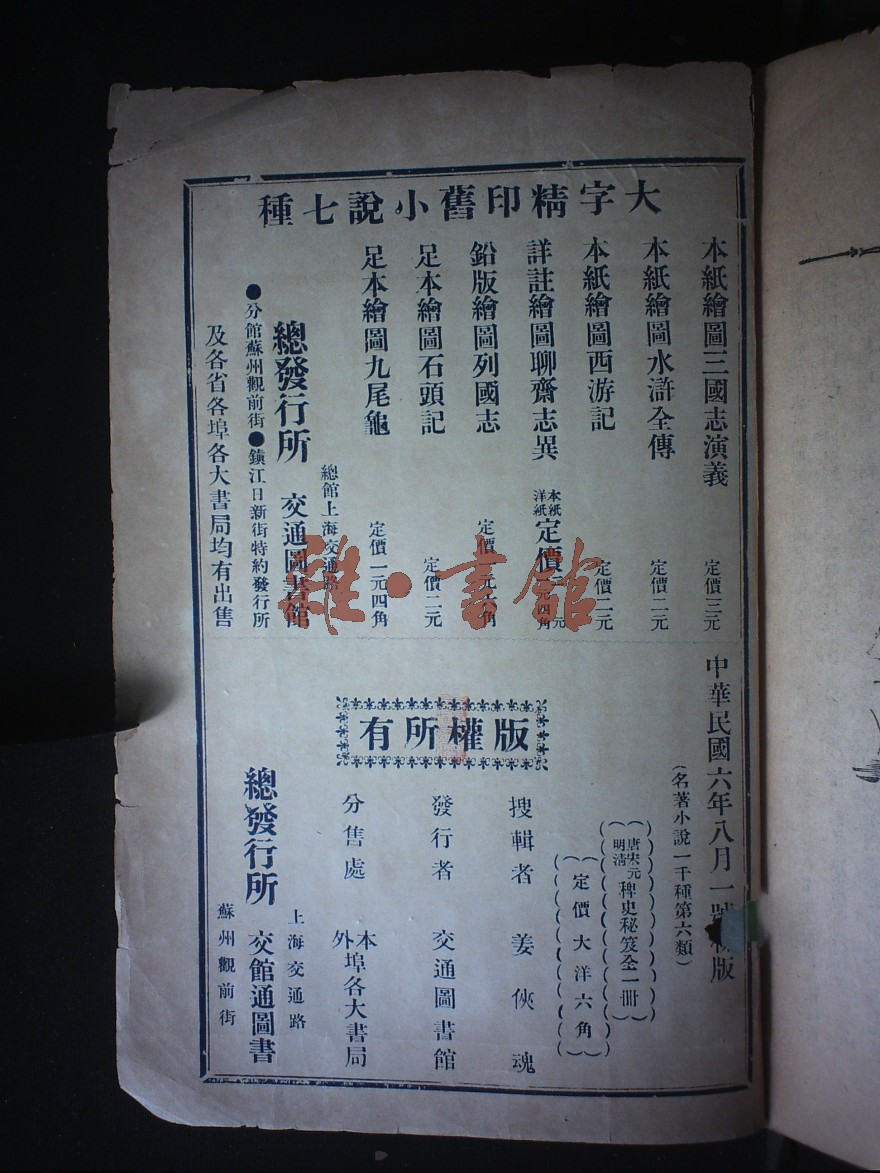 大字精印舊小說七種
本紙繪圖三國志演義 定價三元
本紙繪圖水滸全傳 定價二元
本紙繪圖西游記 定價二元
詳註繪圖聊齋志異 本紙洋紙定價 元四角
鉛版繪圖列國志 定價 元 角
足本繪圖石頭記 定價二元
足本繪圖九尾龜 定價一元四角
總館上海交通路
總發行所 交通圖書館
●分館蘇州觀前街●鎮江日新街特約發行所
及各省各埠各大書局均有出售
中華民國六年八月一號 版
(名著小說一千種第六類)
唐宋元明清稗史秘笈全一冊
定價大洋六角
版權所有
搜輯者 姜俠魂
發行者 交通圖書館
分售處 本外埠各大書局
上海交通路
總發行所 交館通圖書
蘇州觀前街
雜·書館